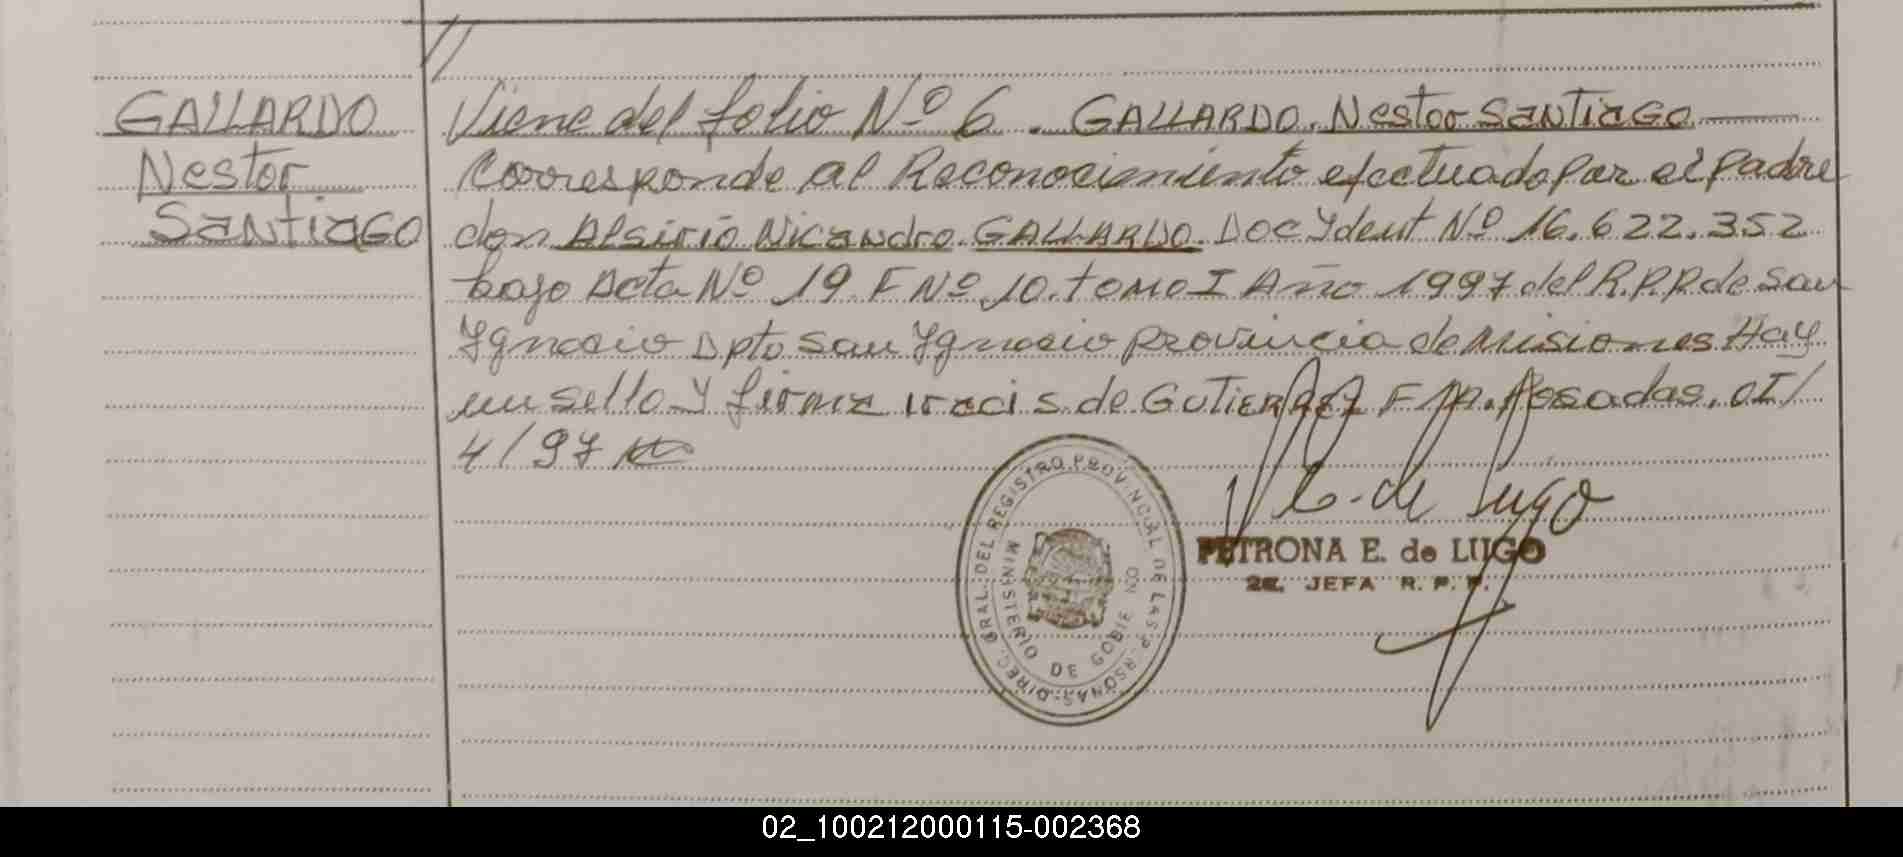 GALLARDO
Nestor
Santiago
Viene del folio Nº 6. GALLARDO. Nestor Santiago
Corresponde al Reconocimiento efectuado por el padre
don Alsirio Nicandro GALLARDO. Doc Ydent Nº 16.622.352
bajo Acta Nº 19 F Nº 10. tomo I Año 1997 del R.P.P. de San
Ygnacio Dpto San Ygnacio provincia de Misiones Hay
un sello y firma Iracis de Gutierrez F Posadas. 01/
4/97
E. de Lugo
PETRONA E. de LUGO
2a. JEFA R. P. P.
DIREC. GRAL. DEL REGISTRO PROVINCIAL DE LAS PERSONAS
MINISTERIO DE GOBIERNO
02_100212000115-002368